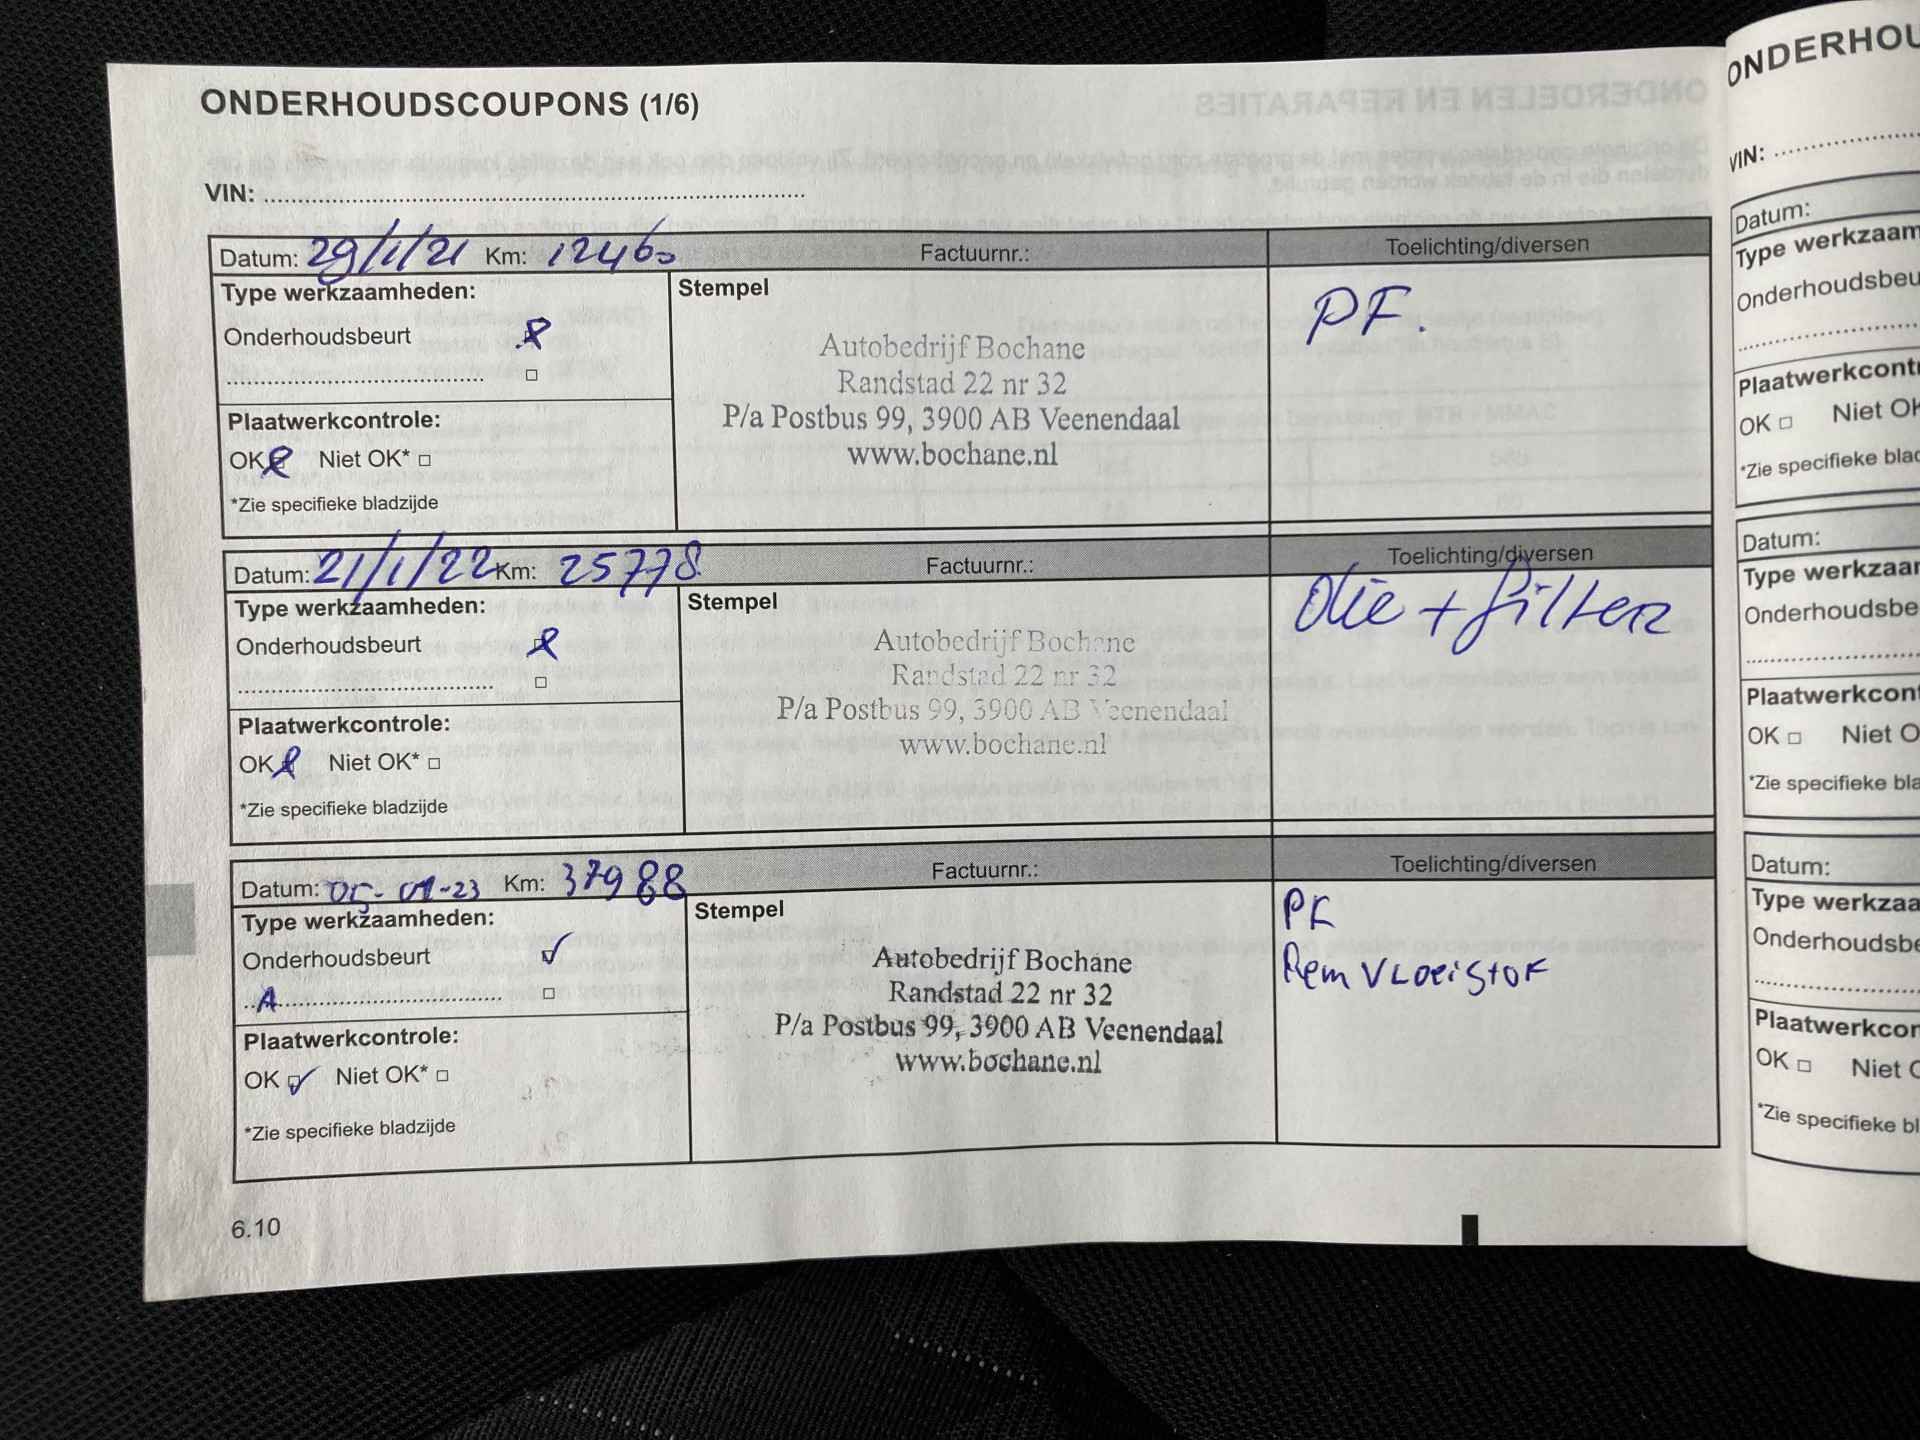 ONDERHOUDSCOUPONS (1/6)
VIN:
Datum: 29/1/21 Km: 12460 Factuurnr.: Toelichting/diversen
Type werkzaamheden:
Stempel
PF.
Onderhoudsbeurt
Autobedrijf Bochane
Randstad 22 nr 32
P/a Postbus 99, 3900 AB Veenendaal
www.bochane.nl
Plaatwerkcontrole:
OK Niet OK*
*Zie specifieke bladzijde
Datum: 21/1/22 Km: 25778 Factuurnr.: Toelichting/diversen
Type werkzaamheden:
Stempel
Olie + filter
Onderhoudsbeurt
Autobedrijf Bochane
Randstad 22 nr 32
P/a Postbus 99, 3900 AB Veenendaal
www.bochane.nl
Plaatwerkcontrole:
OK Niet OK*
*Zie specifieke bladzijde
Datum: 05-01-23 Km: 37988 Factuurnr.: Toelichting/diversen
Type werkzaamheden:
Stempel
PF
Rem vloeistof
Onderhoudsbeurt
A
Autobedrijf Bochane
Randstad 22 nr 32
P/a Postbus 99, 3900 AB Veenendaal
www.bochane.nl
Plaatwerkcontrole:
OK Niet OK*
*Zie specifieke bladzijde
6.10
ONDERHOU
VIN:
Datum:
Type werkzaam
Onderhoudsbeu
Plaatwerkcontr
OK Niet OK
*Zie specifieke blad
Datum:
Type werkzaam
Onderhoudsbe
Plaatwerkcont
OK Niet O
*Zie specifieke bla
Datum:
Type werkzaa
Onderhoudsbe
Plaatwerkcor
OK Niet O
*Zie specifieke bl